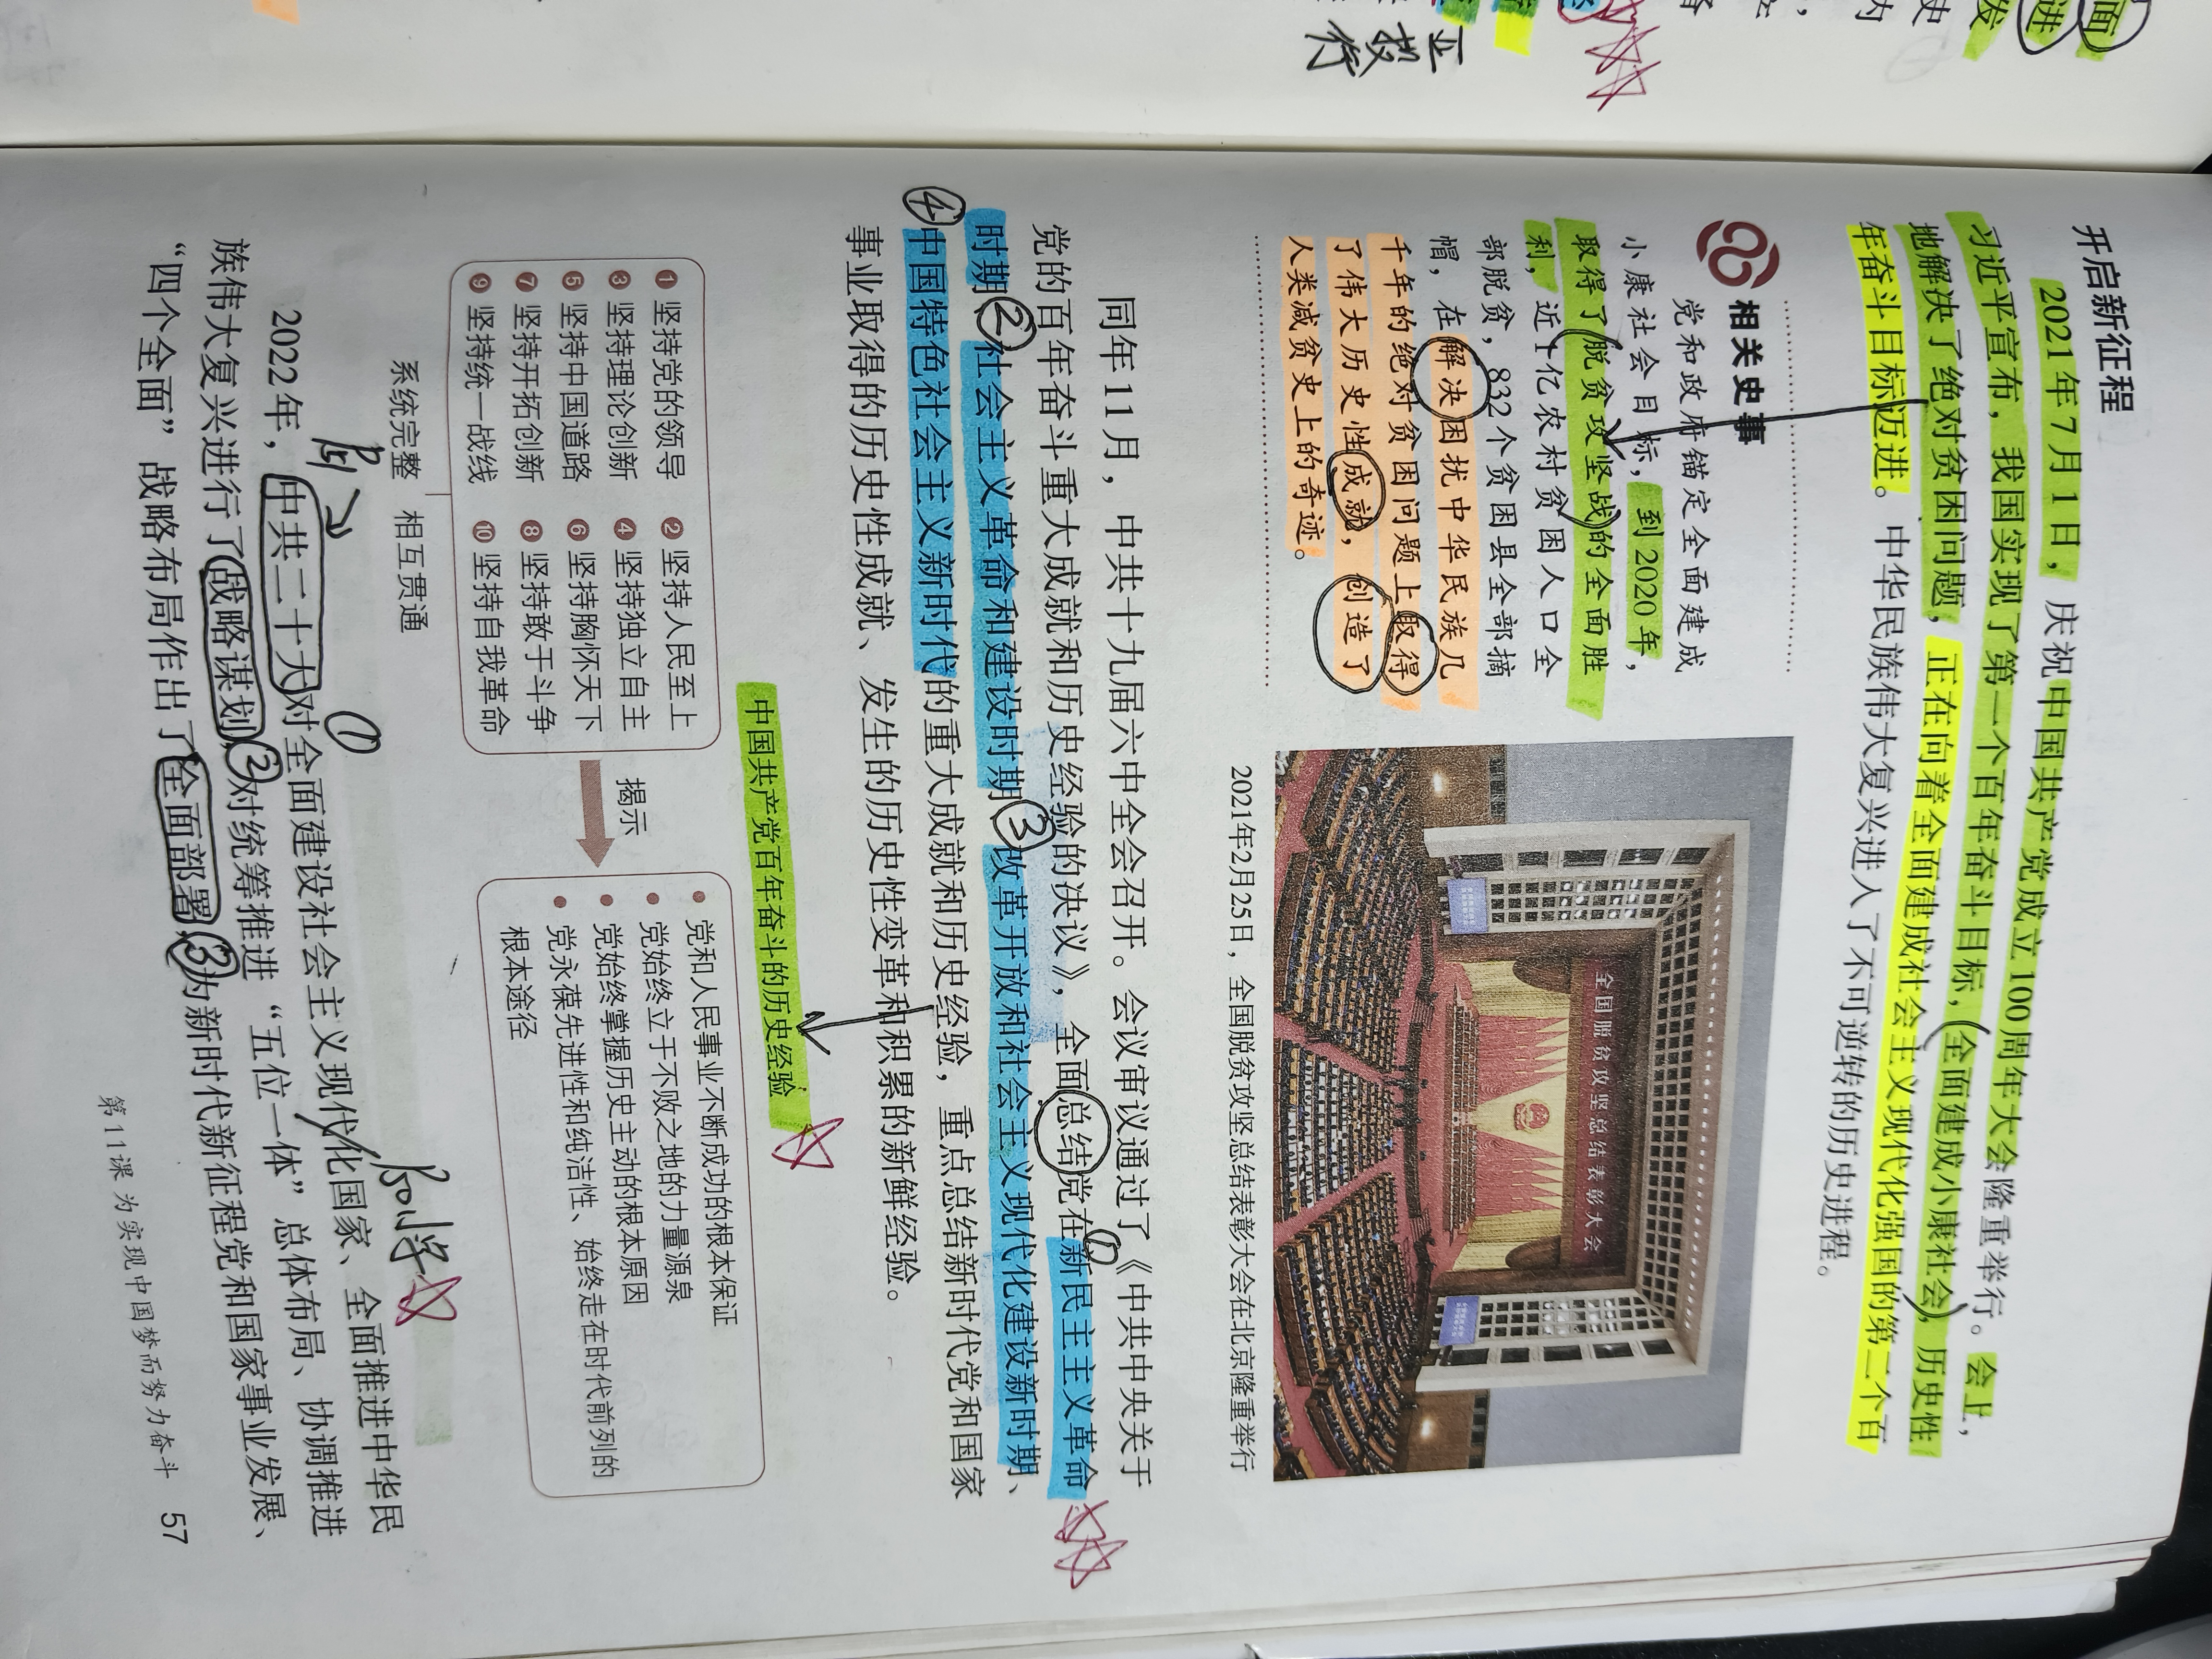 开启新征程
2021年7月1日，庆祝中国共产党成立100周年大会隆重举行。会上，
习近平宣布，我国实现了第一个百年奋斗目标，全面建成小康社会，历史性
地解决了绝对贫困问题，正在向着全面建成社会主义现代化强国的第二个百
年奋斗目标迈进。中华民族伟大复兴进入了不可逆转的历史进程。
相关史事
党和政府锚定全面建成
小康社会目标，到2020年，
取得了脱贫攻坚战的全面胜
利，近1亿农村贫困人口全
部脱贫，832个贫困县全部摘
帽，在解决困扰中华民族几
千年的绝对贫困问题上取得
了伟大历史性成就，创造了
人类减贫史上的奇迹。
全国脱贫攻坚总结表彰大会
2021年2月25日，全国脱贫攻坚总结表彰大会在北京隆重举行
同年11月，中共十九届六中全会召开。会议审议通过了《中共中央关于
党的百年奋斗重大成就和历史经验的决议》，全面总结党在①新民主主义革命
时期、②社会主义革命和建设时期、③改革开放和社会主义现代化建设新时期、
④中国特色社会主义新时代的重大成就和历史经验，重点总结新时代党和国家
事业取得的历史性成就、发生的历史性变革和积累的新鲜经验。
中国共产党百年奋斗的历史经验
❶ 坚持党的领导 ❷ 坚持人民至上
❸ 坚持理论创新 ❹ 坚持独立自主
❺ 坚持中国道路 ❻ 坚持胸怀天下
❼ 坚持开拓创新 ❽ 坚持敢于斗争
❾ 坚持统一战线 ❿ 坚持自我革命
系统完整 相互贯通
揭示
• 党和人民事业不断成功的根本保证
• 党始终立于不败之地的力量源泉
• 党始终掌握历史主动的根本原因
• 党永葆先进性和纯洁性、始终走在时代前列的
根本途径
①
2022年，中共二十大对全面建设社会主义现代化国家、全面推进中华民
族伟大复兴进行了战略谋划，②对统筹推进“五位一体”总体布局、协调推进
“四个全面”战略布局作出了全面部署，③为新时代新征程党和国家事业发展、
第11课 为实现中国梦而努力奋斗 57